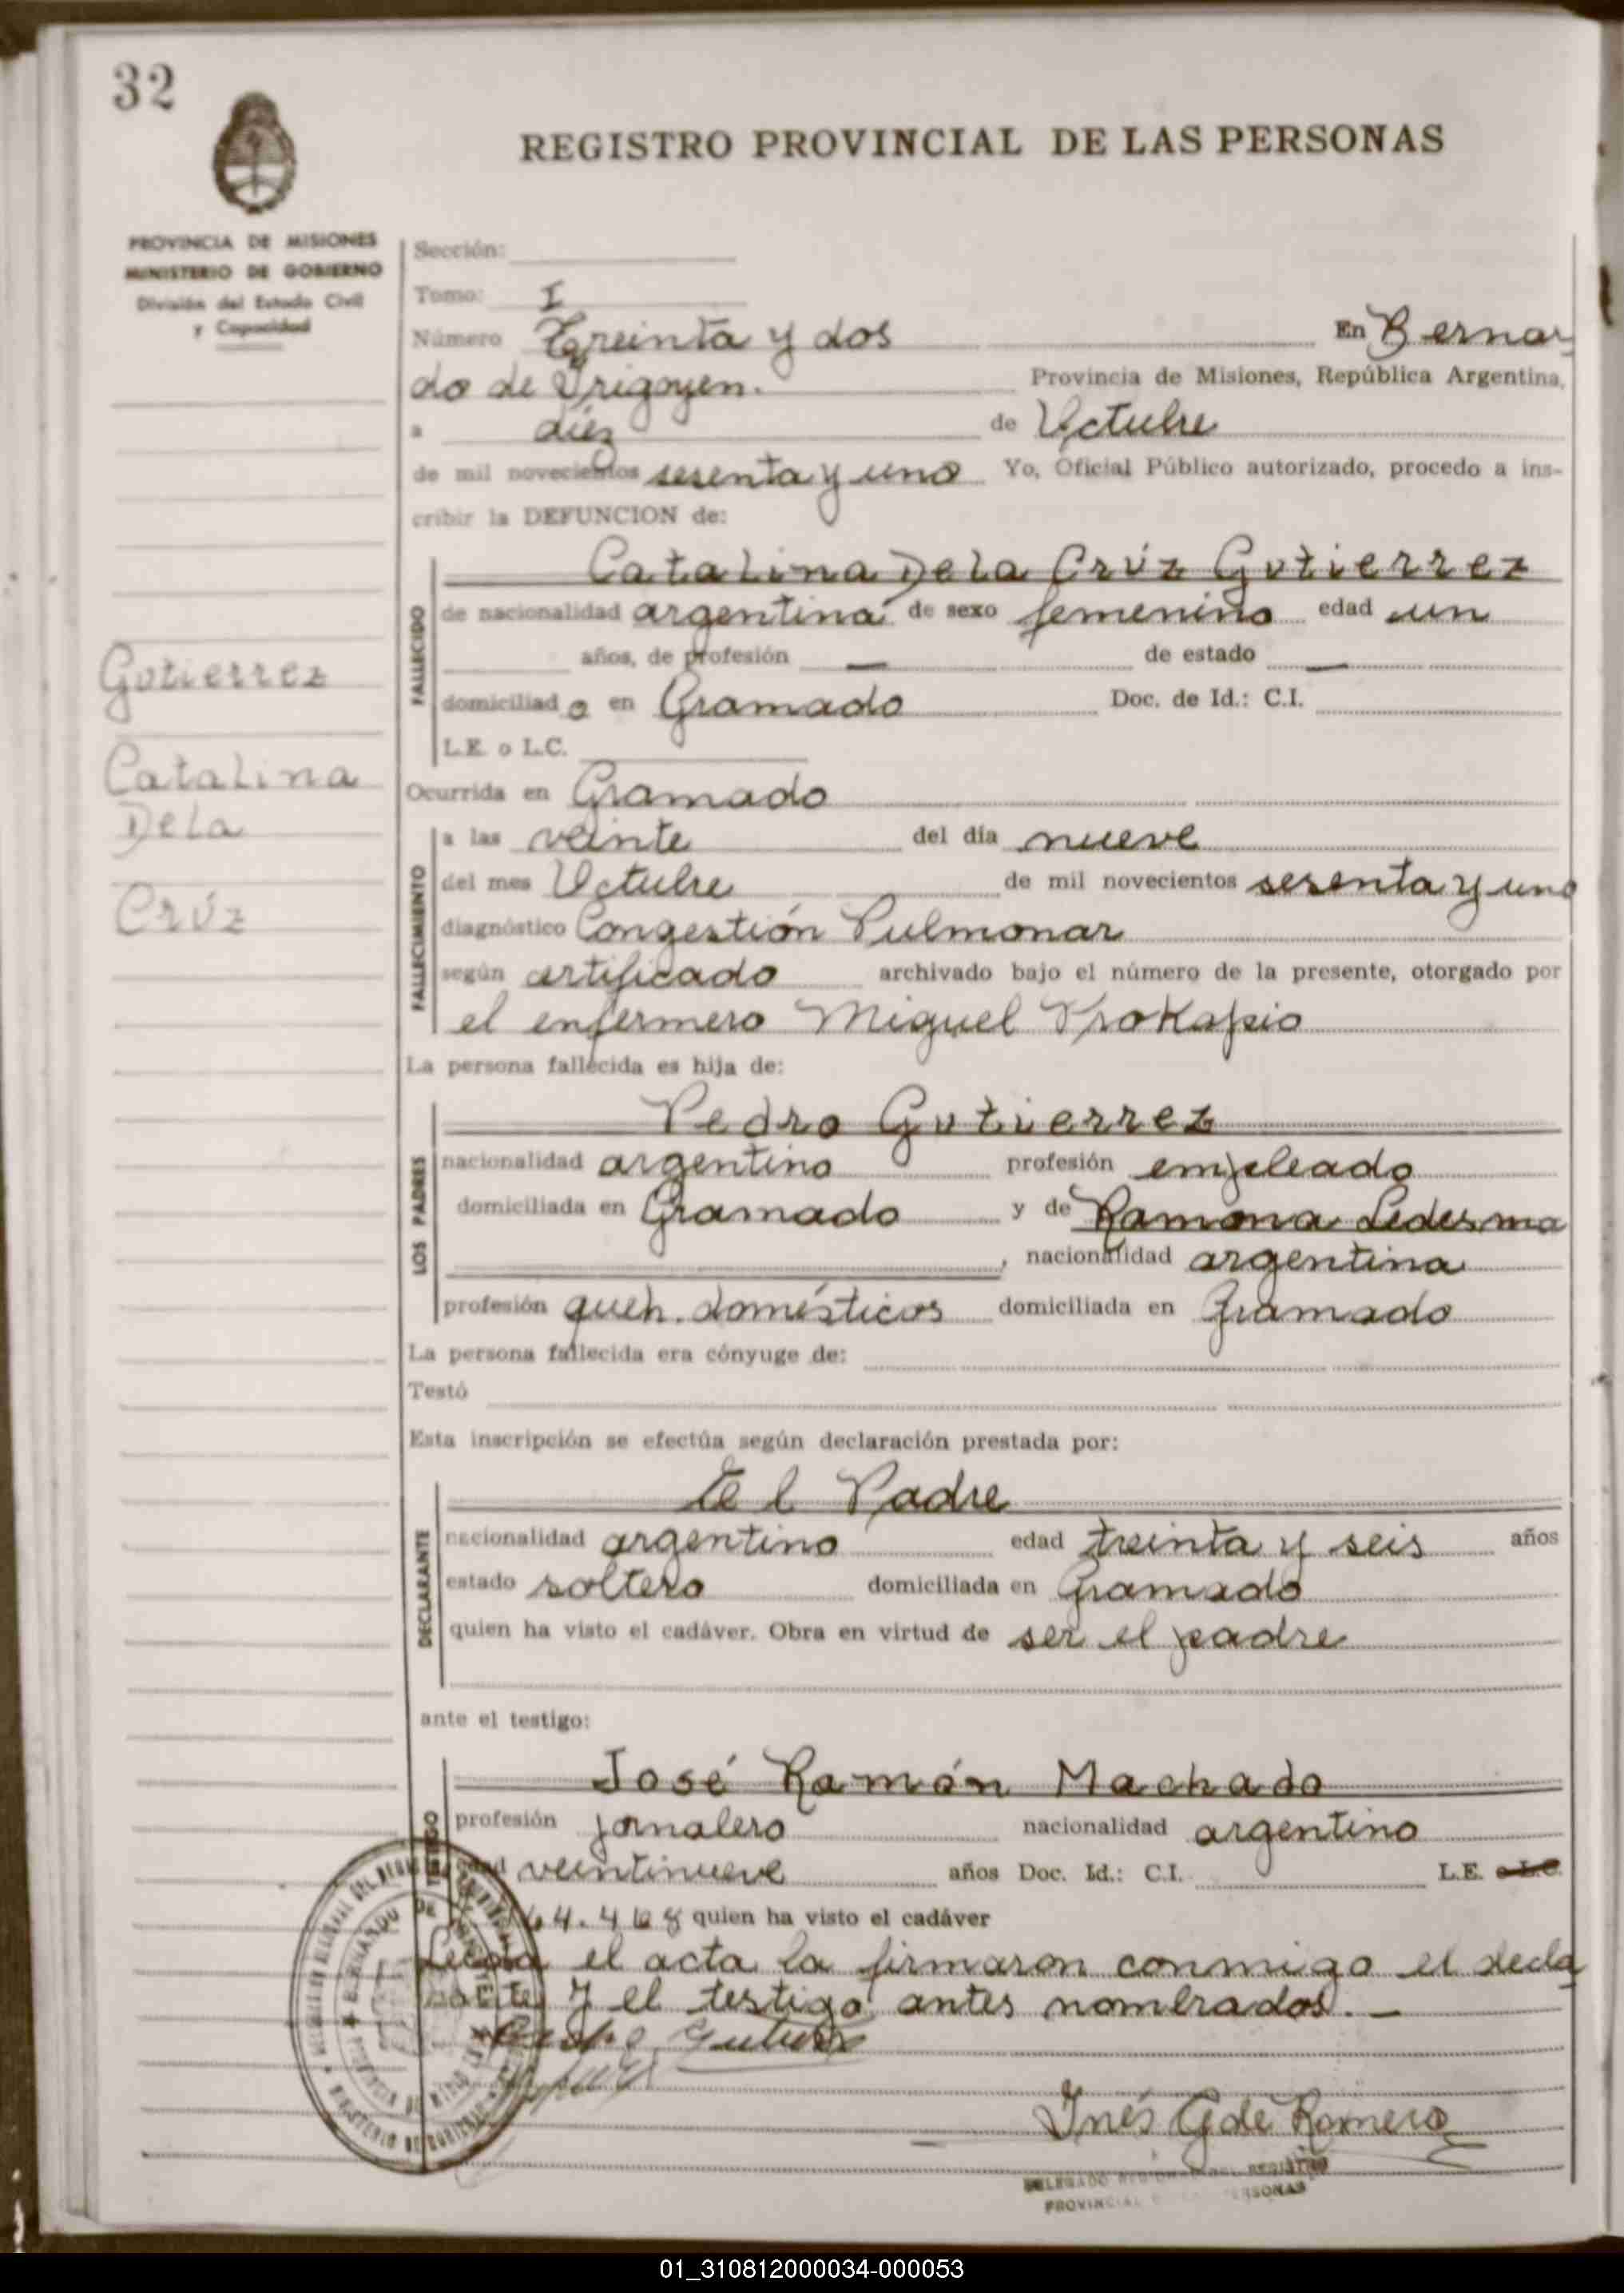 32
REGISTRO PROVINCIAL DE LAS PERSONAS
PROVINCIA DE MISIONES
MINISTERIO DE GOBIERNO
División del Estado Civil
y Capacidad
Gutierrez
Catalina
Dela
Crúz
Sección:
Tomo: I
Número Treinta y dos En Bernar
do de Irigoyen. Provincia de Misiones, República Argentina,
a diéz de Octubre
de mil novecientos sesenta y uno Yo, Oficial Público autorizado, procedo a ins-
cribir la DEFUNCION de:
FALLECIDO
Catalina Dela Crúz Gutierrez
de nacionalidad argentina de sexo femenino edad un
años, de profesión — de estado —
domiciliado en Gramado Doc. de Id.: C.I.
L.E. o L.C.
Ocurrida en Gramado
FALLECIMIENTO
a las veinte del día nueve
del mes Octubre de mil novecientos sesenta y uno
diagnóstico Congestión Pulmonar
según certificado archivado bajo el número de la presente, otorgado por
el enfermero Miguel
La persona fallecida es hija de:
LOS PADRES
Pedro Gutierrez
nacionalidad argentino profesión empleado
domiciliada en Gramado y de Ramona Ledesma
, nacionalidad argentina
profesión queh. domésticos domiciliada en Gramado
La persona fallecida era cónyuge de:
Testó
Esta inscripción se efectúa según declaración prestada por:
DECLARANTE
El Padre
nacionalidad argentino edad treinta y seis años
estado soltero domiciliada en Gramado
quien ha visto el cadáver. Obra en virtud de ser el padre
ante el testigo:
José Ramón Machado
profesión jornalero nacionalidad argentino
edad veintinueve años Doc. Id.: C.I. L.E. o L.C.
quien ha visto el cadáver
Leída el acta la firmaron conmigo el decla
rante y el testigo antes nombrados. —
Pedro Gutierrez
Inés G de Romero
DELEGADO REGISTRO
PROVINCIAL PERSONAS
01_310812000034-000053